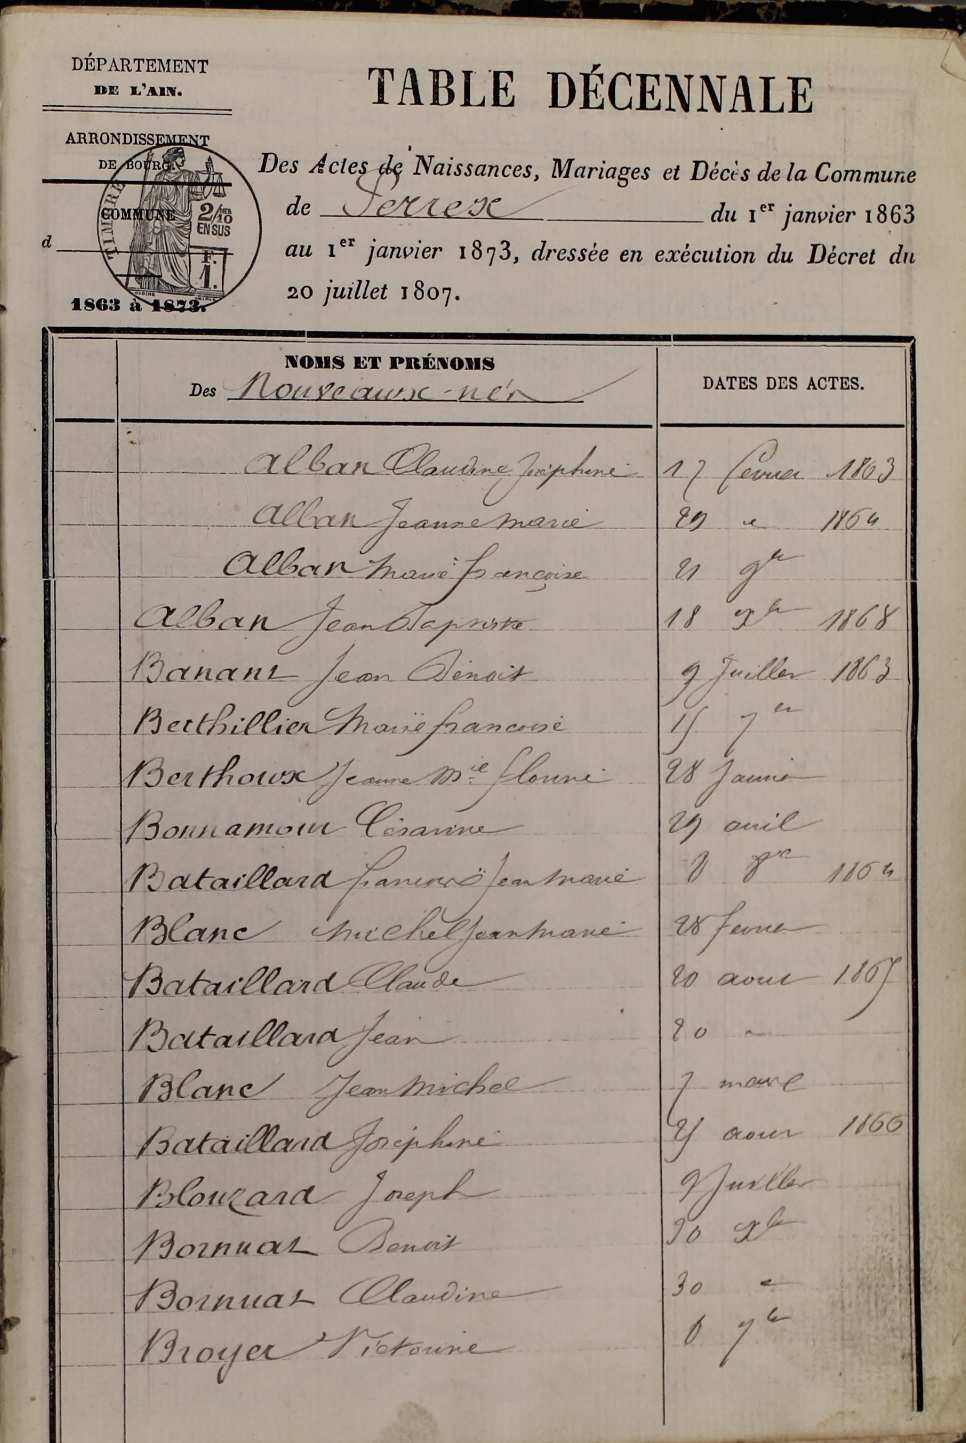 DÉPARTEMENT
DE L'AIN.
ARRONDISSEMENT
DE BOURG
COMMUNE
d
1863 à 1873.
TIMBRE
2/10
EN SUS
F.
1.
TABLE DÉCENNALE
Des Actes de Naissances, Mariages et Décès de la Commune
de Perrex du 1er janvier 1863
au 1er janvier 1873, dressée en exécution du Décret du
20 juillet 1807.
NOMS ET PRÉNOMS
Des Nouveaux-nés
DATES DES ACTES.
Alban Claudine Joséphine 17 fevrier 1863
Alban Jeanne Marie 29 " 1864
Alban Marie françoise 21 9bre
Alban Jean Baptiste 18 Xbre 1868
Banant Jean Benoit 9 Juillet 1863
Berthillier Marie francoise 15 7bre
Berthoux Jeanne Mie 28 Janvier
Bonnamour Césarine 29 avril
Bataillard francois Jean Marie 8 8bre 1864
Blanc Michel Jean Marie 28 fevrier
Bataillard Claude 20 aout 1865
Bataillard Jean 20 "
Blanc Jean Michel 7 mars
Bataillard Joséphine 25 aout 1866
Blouzard Joseph 9 Juillet
Bornuat Benoit 30 Xbre
Bornuat Claudine 30 "
Broyer Victorine 6 7bre